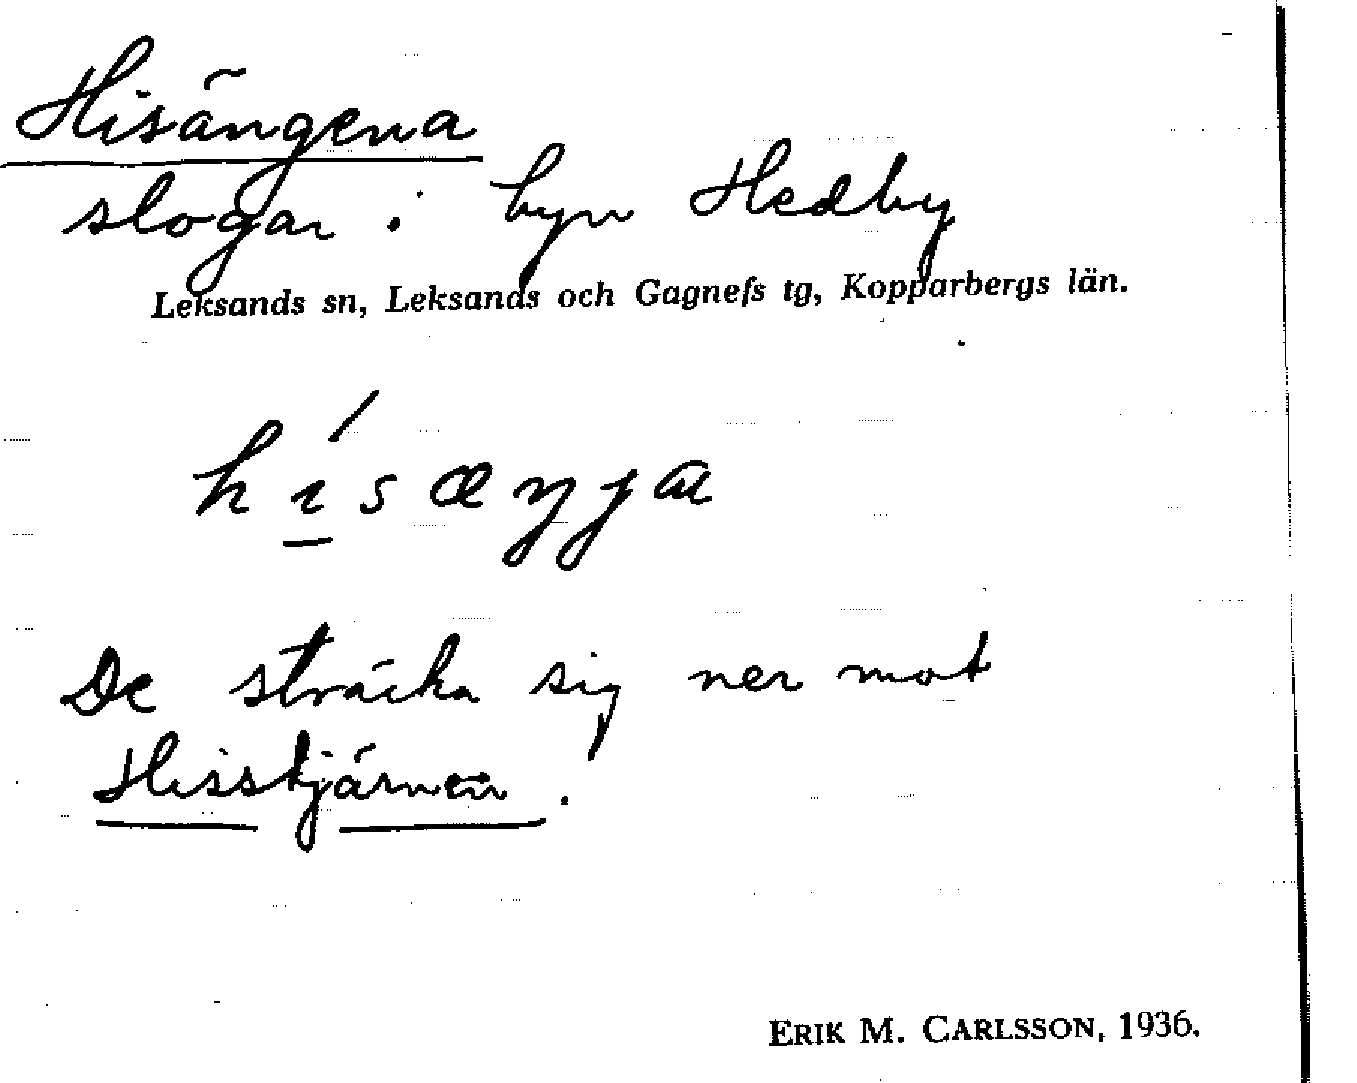 Hisängena
slogar i byn Hedby
Leksands sn, Leksands och Gagnefs tg, Kopparbergs län.
De sträcka sig ner mot
Hisstjärnen.
ERIK M. CARLSSON, 1936.